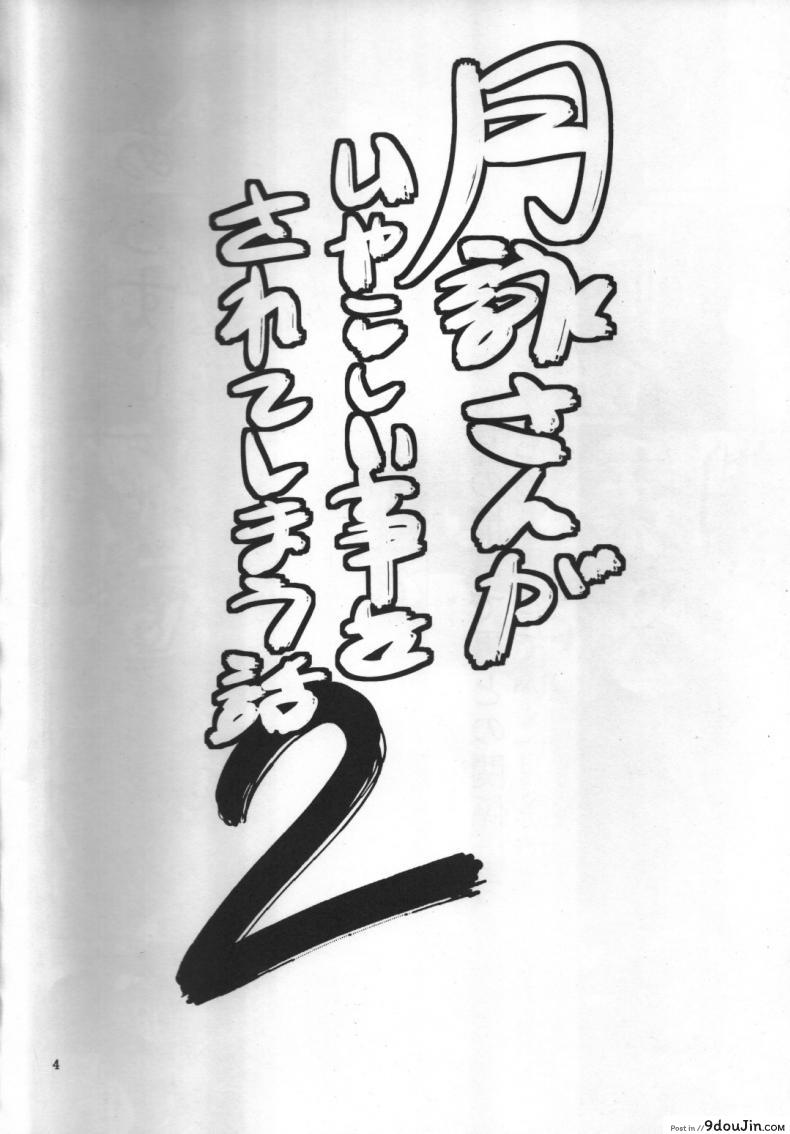 月詠さんが
いやらしい事を
されてしまう話
2
4
Post in //9douJin.com